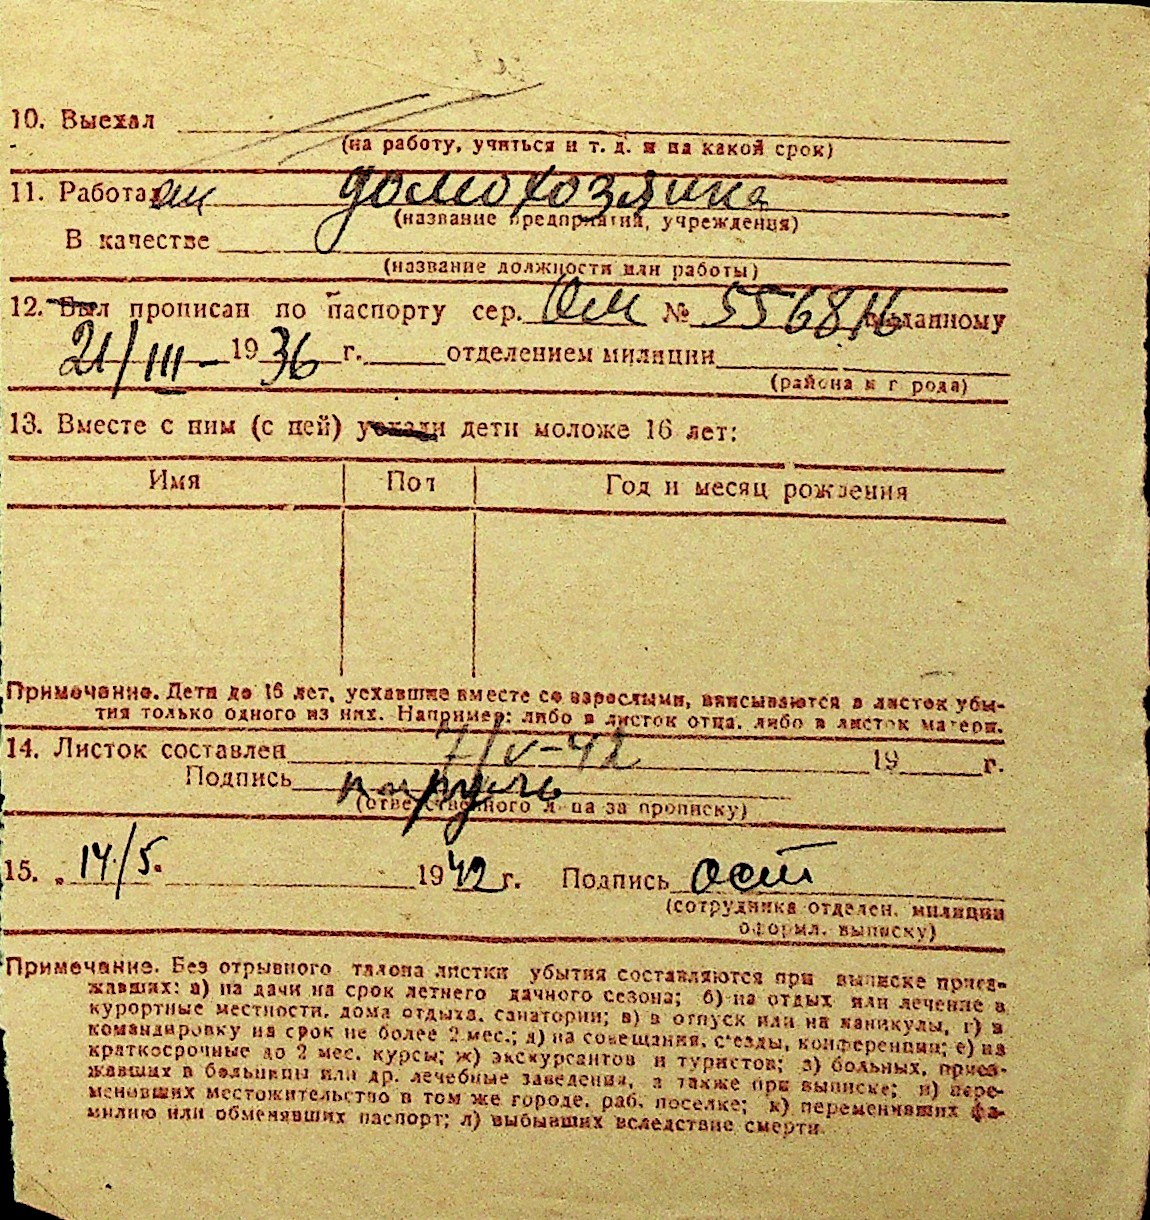 10. Выехал
(на работу, учиться и т. д. и на какой срок)
11. Работа домохозяйка
(название предприятия, учреждения)
В качестве
(название должности или работы)
12. Был прописан по паспорту сер. ОМ № 556816 выданному
21/III – 1936 г. отделением милиции
(района и города)
13. Вместе с ним (с ней) уехали дети моложе 16 лет:
Имя Пол Год и месяц рождения
Примечание. Дети до 16 лет, уехавшие вместе со взрослыми, вписываются в листок убы-
тия только одного из них. Например: либо в листок отца, либо в листок матери.
14. Листок составлен 7/V–42 19 г.
Подпись
(ответственного лица за прописку)
15. „ 14/5. 1942 г. Подпись
(сотрудника отделен. милиции
оформл. выписку)
Примечание. Без отрывного талона листки убытия составляются при выписке приез-
жавших: а) на дачи на срок летнего дачного сезона; б) на отдых или лечение в
курортные местности, дома отдыха, санатории; в) в отпуск или на каникулы, г) в
командировку на срок не более 2 мес.; д) на совещания, с'езды, конференции; е) на
краткосрочные до 2 мес. курсы; ж) экскурсантов и туристов; з) больных, приез-
жавших в больницы или др. лечебные заведения, а также при выписке; и) пере-
менивших местожительство в том же городе, раб. поселке; к) переменивших фа-
милию или обменявших паспорт; л) выбывших вследствие смерти.